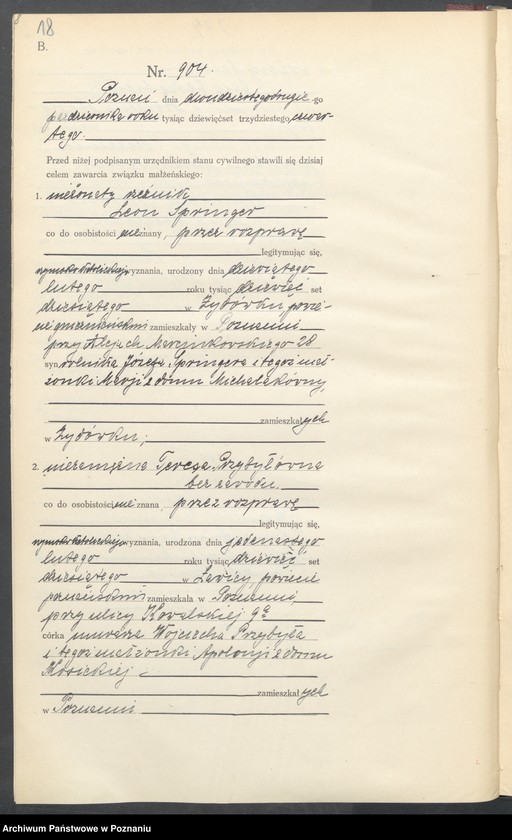 18
B.
Nr. 904.
Poznań dnia dwudziestegodrugie-go
października roku tysiąc dziewięćset trzydziestego czwar-
tego.
Przed niżej podpisanym urzędnikiem stanu cywilnego stawili się dzisiaj
celem zawarcia związku małżeńskiego:
1. nieżonaty rzeźnik
Leon Springer
co do osobistości nieznany, przez rozprawę
legitymując się,
rzymsko katolickiego wyznania, urodzony dnia dziewiątego
lutego roku tysiąc dziewięć set
dziesiątego w Żydówku, powie-
cie gnieźnieńskim zamieszkały w Poznaniu
przy Alejach Marcinkowskiego 28
syn rolnika Józefa Springera i tegoż mał-
żonki Marji z domu Michalakówny
zamieszkałych
w Żydówku;
2. niezamężna Teresa Przybyłówna
bez zawodu
co do osobistości nie znana, przez rozprawę
legitymując się,
rzymsko katolickiego wyznania, urodzona dnia jedenastego
lutego roku tysiąc dziewięć set
dziesiątego w Ławicy, powiecie
poznańskim zamieszkała w Poznaniu,
przy ulicy Kowalskiej 9a
córka murarza Wojciecha Przybyła
i tegoż małżonki Apolonji z domu
zamieszkałych
w Poznaniu
Archiwum Państwowe w Poznaniu